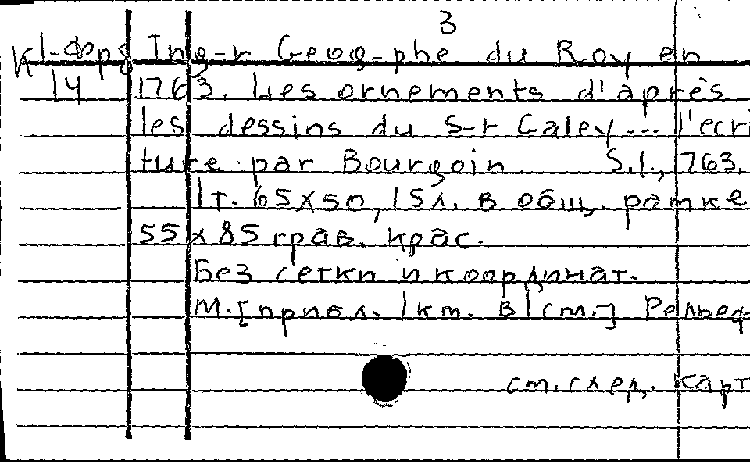 3
К 1-Фрз Ing-r Geog-phe du Roy en
14 1763. Les ornements d'après
les dessins du S-r Caley... l'ecri
ture par Bourgoin. S.l., 763.
1т. 65x50, 15л. в общ. рамке
55x85 грав. крас.
Без сетки и координат.
М. [прибл. 1км. в 1см.] Рельеф
см. след. карт